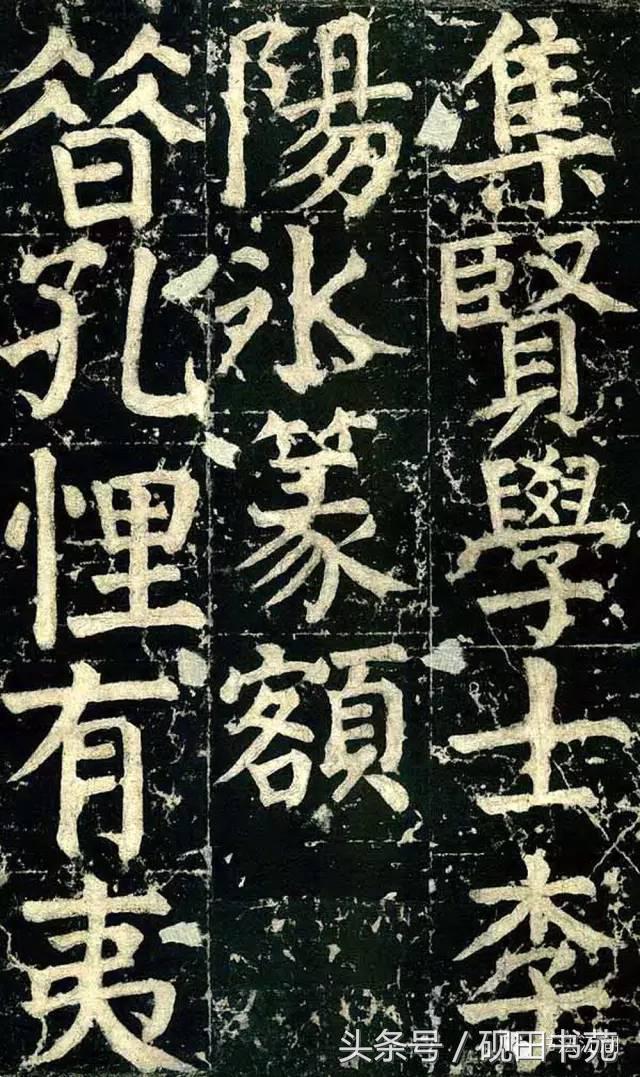 集賢學士李
陽冰篆額
㫺孔悝有夷
头条号 / 砚田书苑